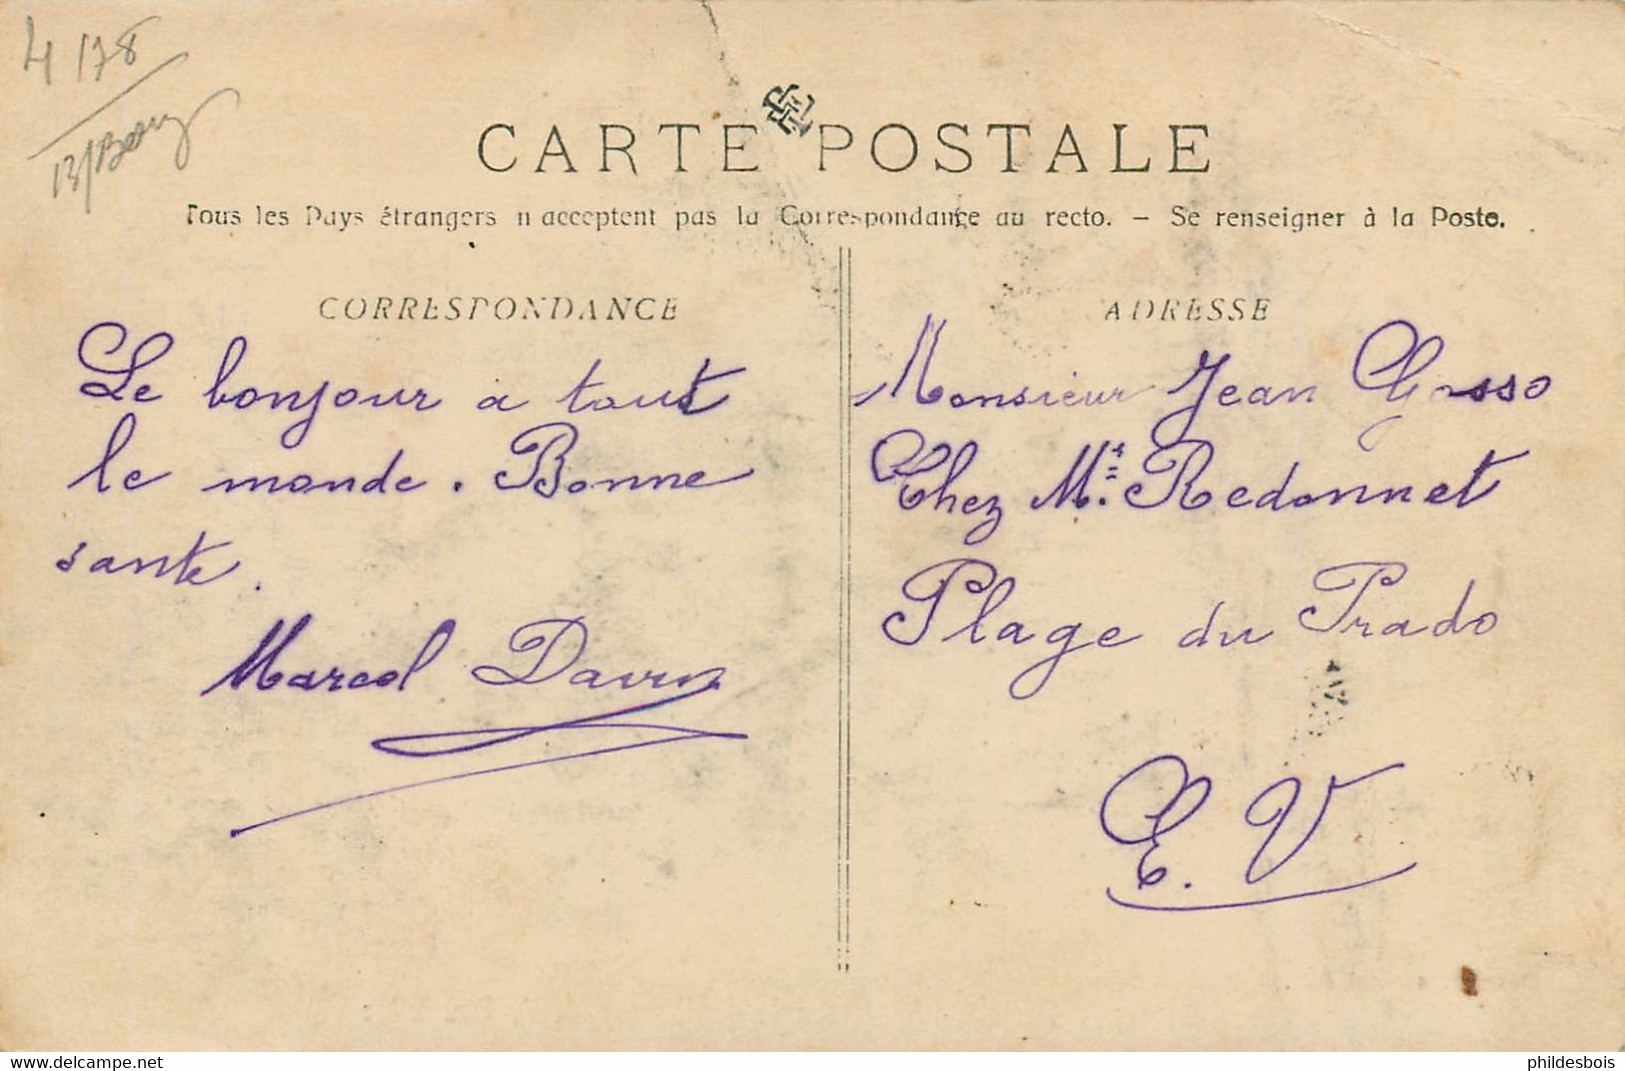 4178
13/
CARTE POSTALE
Tous les Pays étrangers n acceptent pas la Correspondance au recto. — Se renseigner à la Poste.
CORRESPONDANCE
Le bonjour a tout
le monde. Bonne
sante.
Marcel
ADRESSE
Monsieur Jean Grosso
Chez Mr. Redonnet
Plage du Prado
E. V
delcampe.net
phildesbois